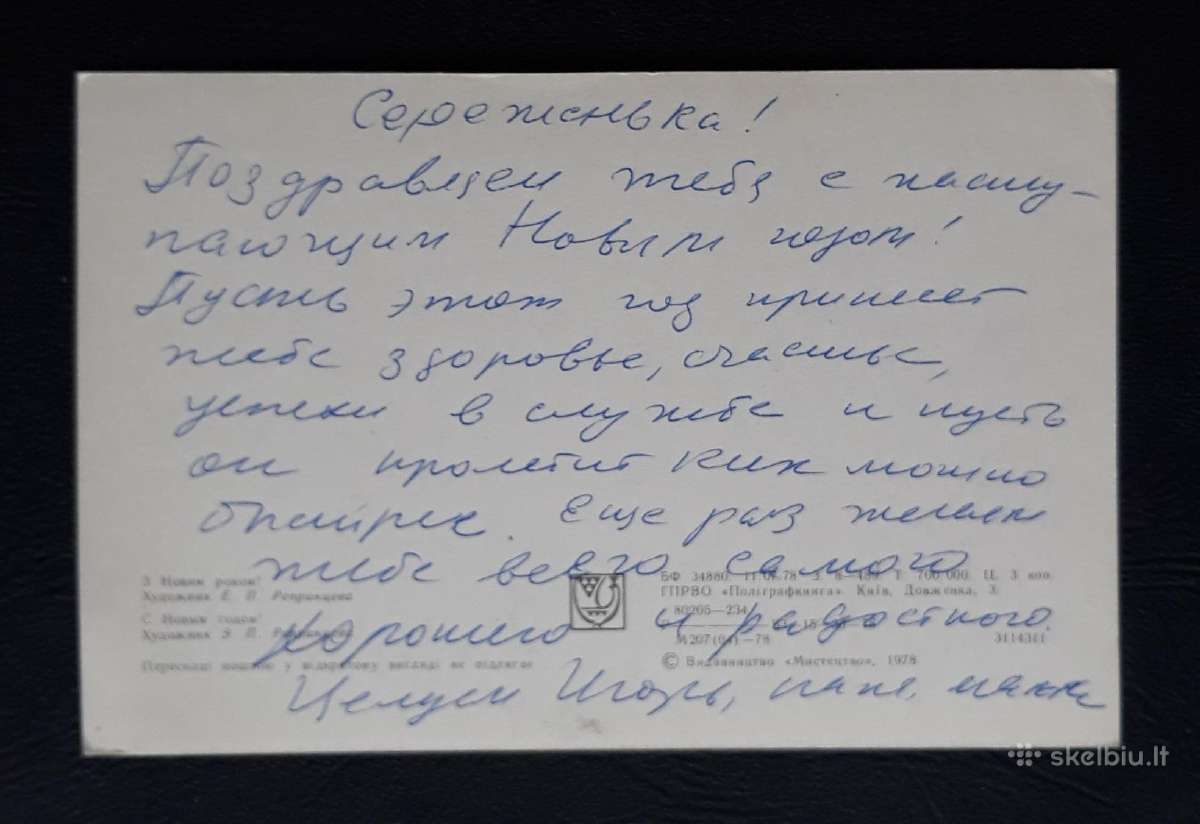 Сереженька!
Поздравляем тебя с насту-
пающим Новым годом!
Пусть этот год принесет
тебе здоровье, счастье,
успехи в службе и пусть
он пролетит как можно
быстрее. Еще раз желаем
тебе всего самого
хорошего и радостного.
Целуем Игорь, папа, мама
З Новим роком!
Художник Е. П. Репринцева
С Новым годом!
Художник Э. П.
Пересилці поштою у відкритому вигляді не підлягає
БФ 34880. 11.07.78 З. 8—489. Т. 700 000. Ц. 3 коп.
ГПРВО «Поліграфкнига». Київ, Довженка, 3.
80205—234
М207(04)—78
3114311
© Видавництво «Мистецтво», 1978
skelbiu.lt